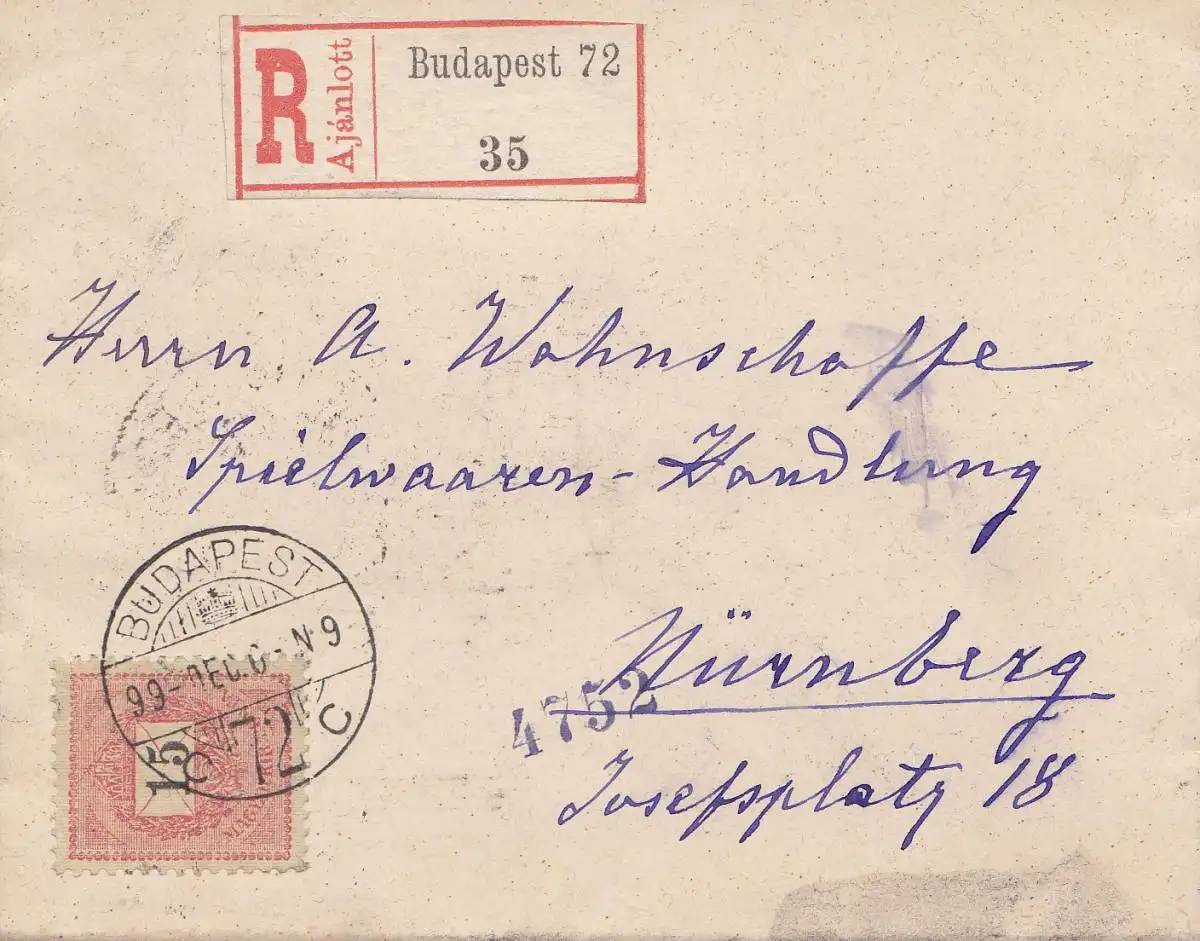 R
Ajánlott
Budapest 72
35
Herrn A. Wohnschaffe
Spielwaaren-Handlung
Nürnberg
4752
Josefsplatz 18
BUDAPEST
99-DEC. N9
72
C
15